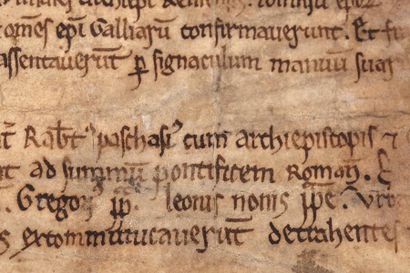 archiepi Remensis.
om̄es epi Galliarū confirmauerunt. Et
assentauer̄t ꝑ signaculum manuū suar
Rab̄t pascħasi cum archiepiscopis ⁊
ad summū pontificem Roman.
Gregor̄ p̄p. leonis nonis p̄pe.
excommunicauer̄t detrahentes